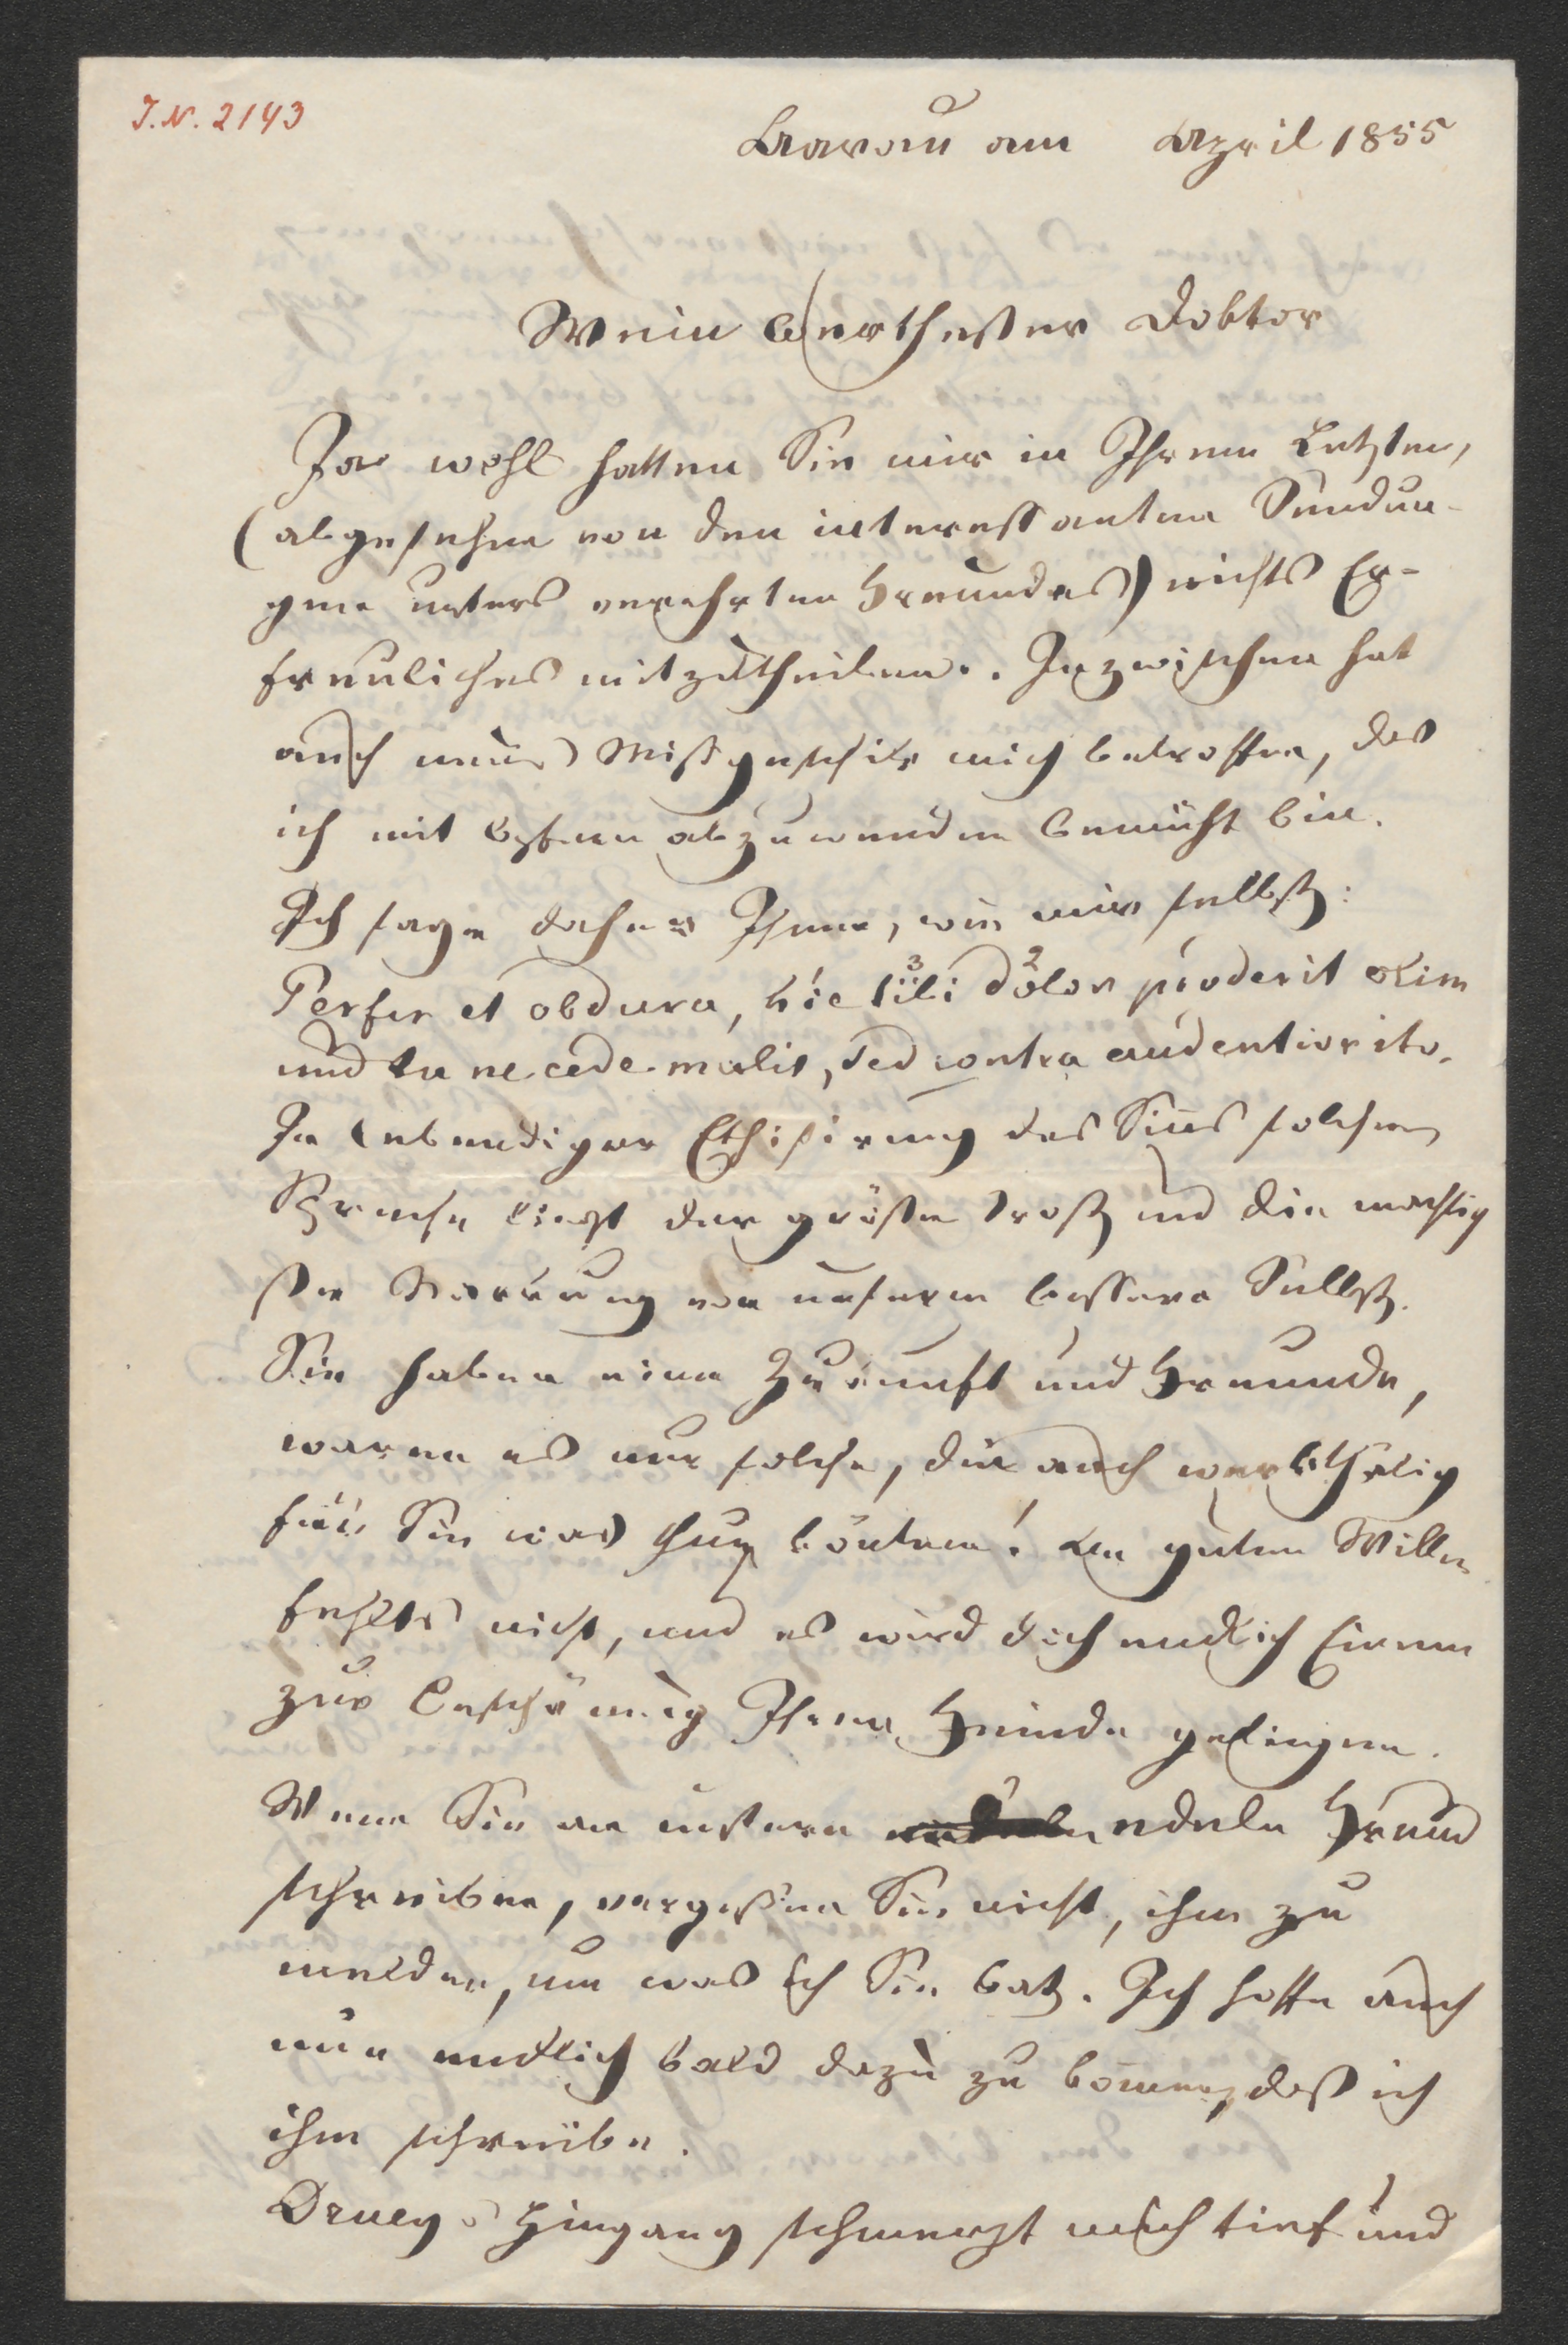 J. N. 2143
Aarau am April 1855
Mein Werthester Doktor
Ja wohl hatten Sie mir in Ihrem Letzten,
(abgesehen von den interessanten Sendun-
gen unsers verehrten Freundes) nichts Er-
freuliches mitzutheilen. Inzwischen hat
auch neues Missgeschik mich betroffen, das
ich mit abzuwenden bemüht bin.
Ich sage daher Ihnen, wie mir selbst:
Perfer et obdura, hic tibi dolor proderit olim
und tu ne cede malis, sed contra audentior ito.
In lebendiger des Sinns solchen
Spruche liegt der größte Trost und die mächtig
ste Stärkung von unserm bessern Selbst.
Sie haben eine Zukunft und Freunde,
waren es nur solche, die auch werkthätig
für Sie was thun könten! An gutem Willen
fehlts nicht, und es wird doch endlich Einem
zur Beschämung Ihrer Feinde gelingen.
Wenn Sie an unsern edeln Freund
schreiben, vergeßen Sie nicht, ihm zu
melden, um was ich Sie bat. Ich hoffe auch
nun endlich bald dazu zu kommen, daß ich
ihm schreibe.
Drueys Hingang schmerzt mich tief und